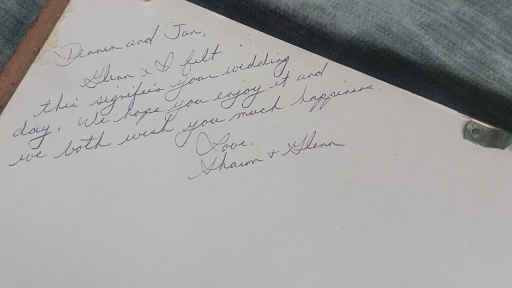 Dennis and Jan,
Glenn & I felt
this signifies your wedding
day. We hope you enjoy it and
we both wish you much happiness.
Love,
Sharon & Glenn